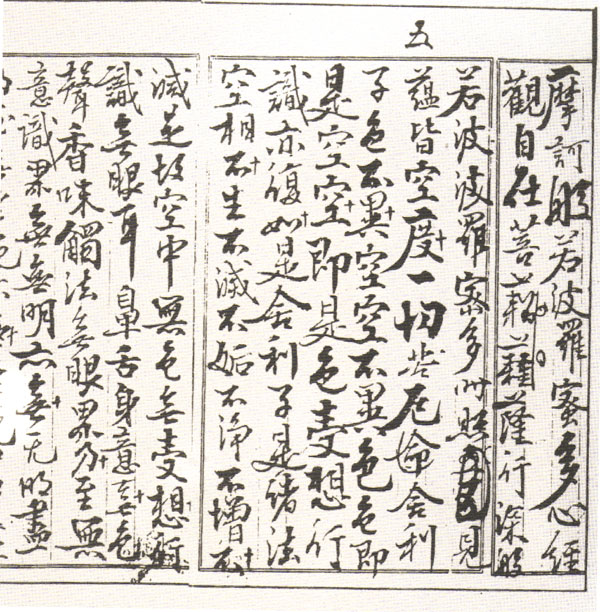 摩訶般若波羅蜜多心経
觀自在菩薩行深般
若波波羅蜜多时照見
五
蘊皆空度一切苦厄舍利
子色不異空空不異色色即
是空空即是色受想行
識亦復如是舍利子是諸法
空相不生不滅不垢不浄不增不
減是故空中無色無受想行
識無眼耳鼻舌身意無色
聲香味觸法無眼界乃至無
意識界無無明亦無无明盡